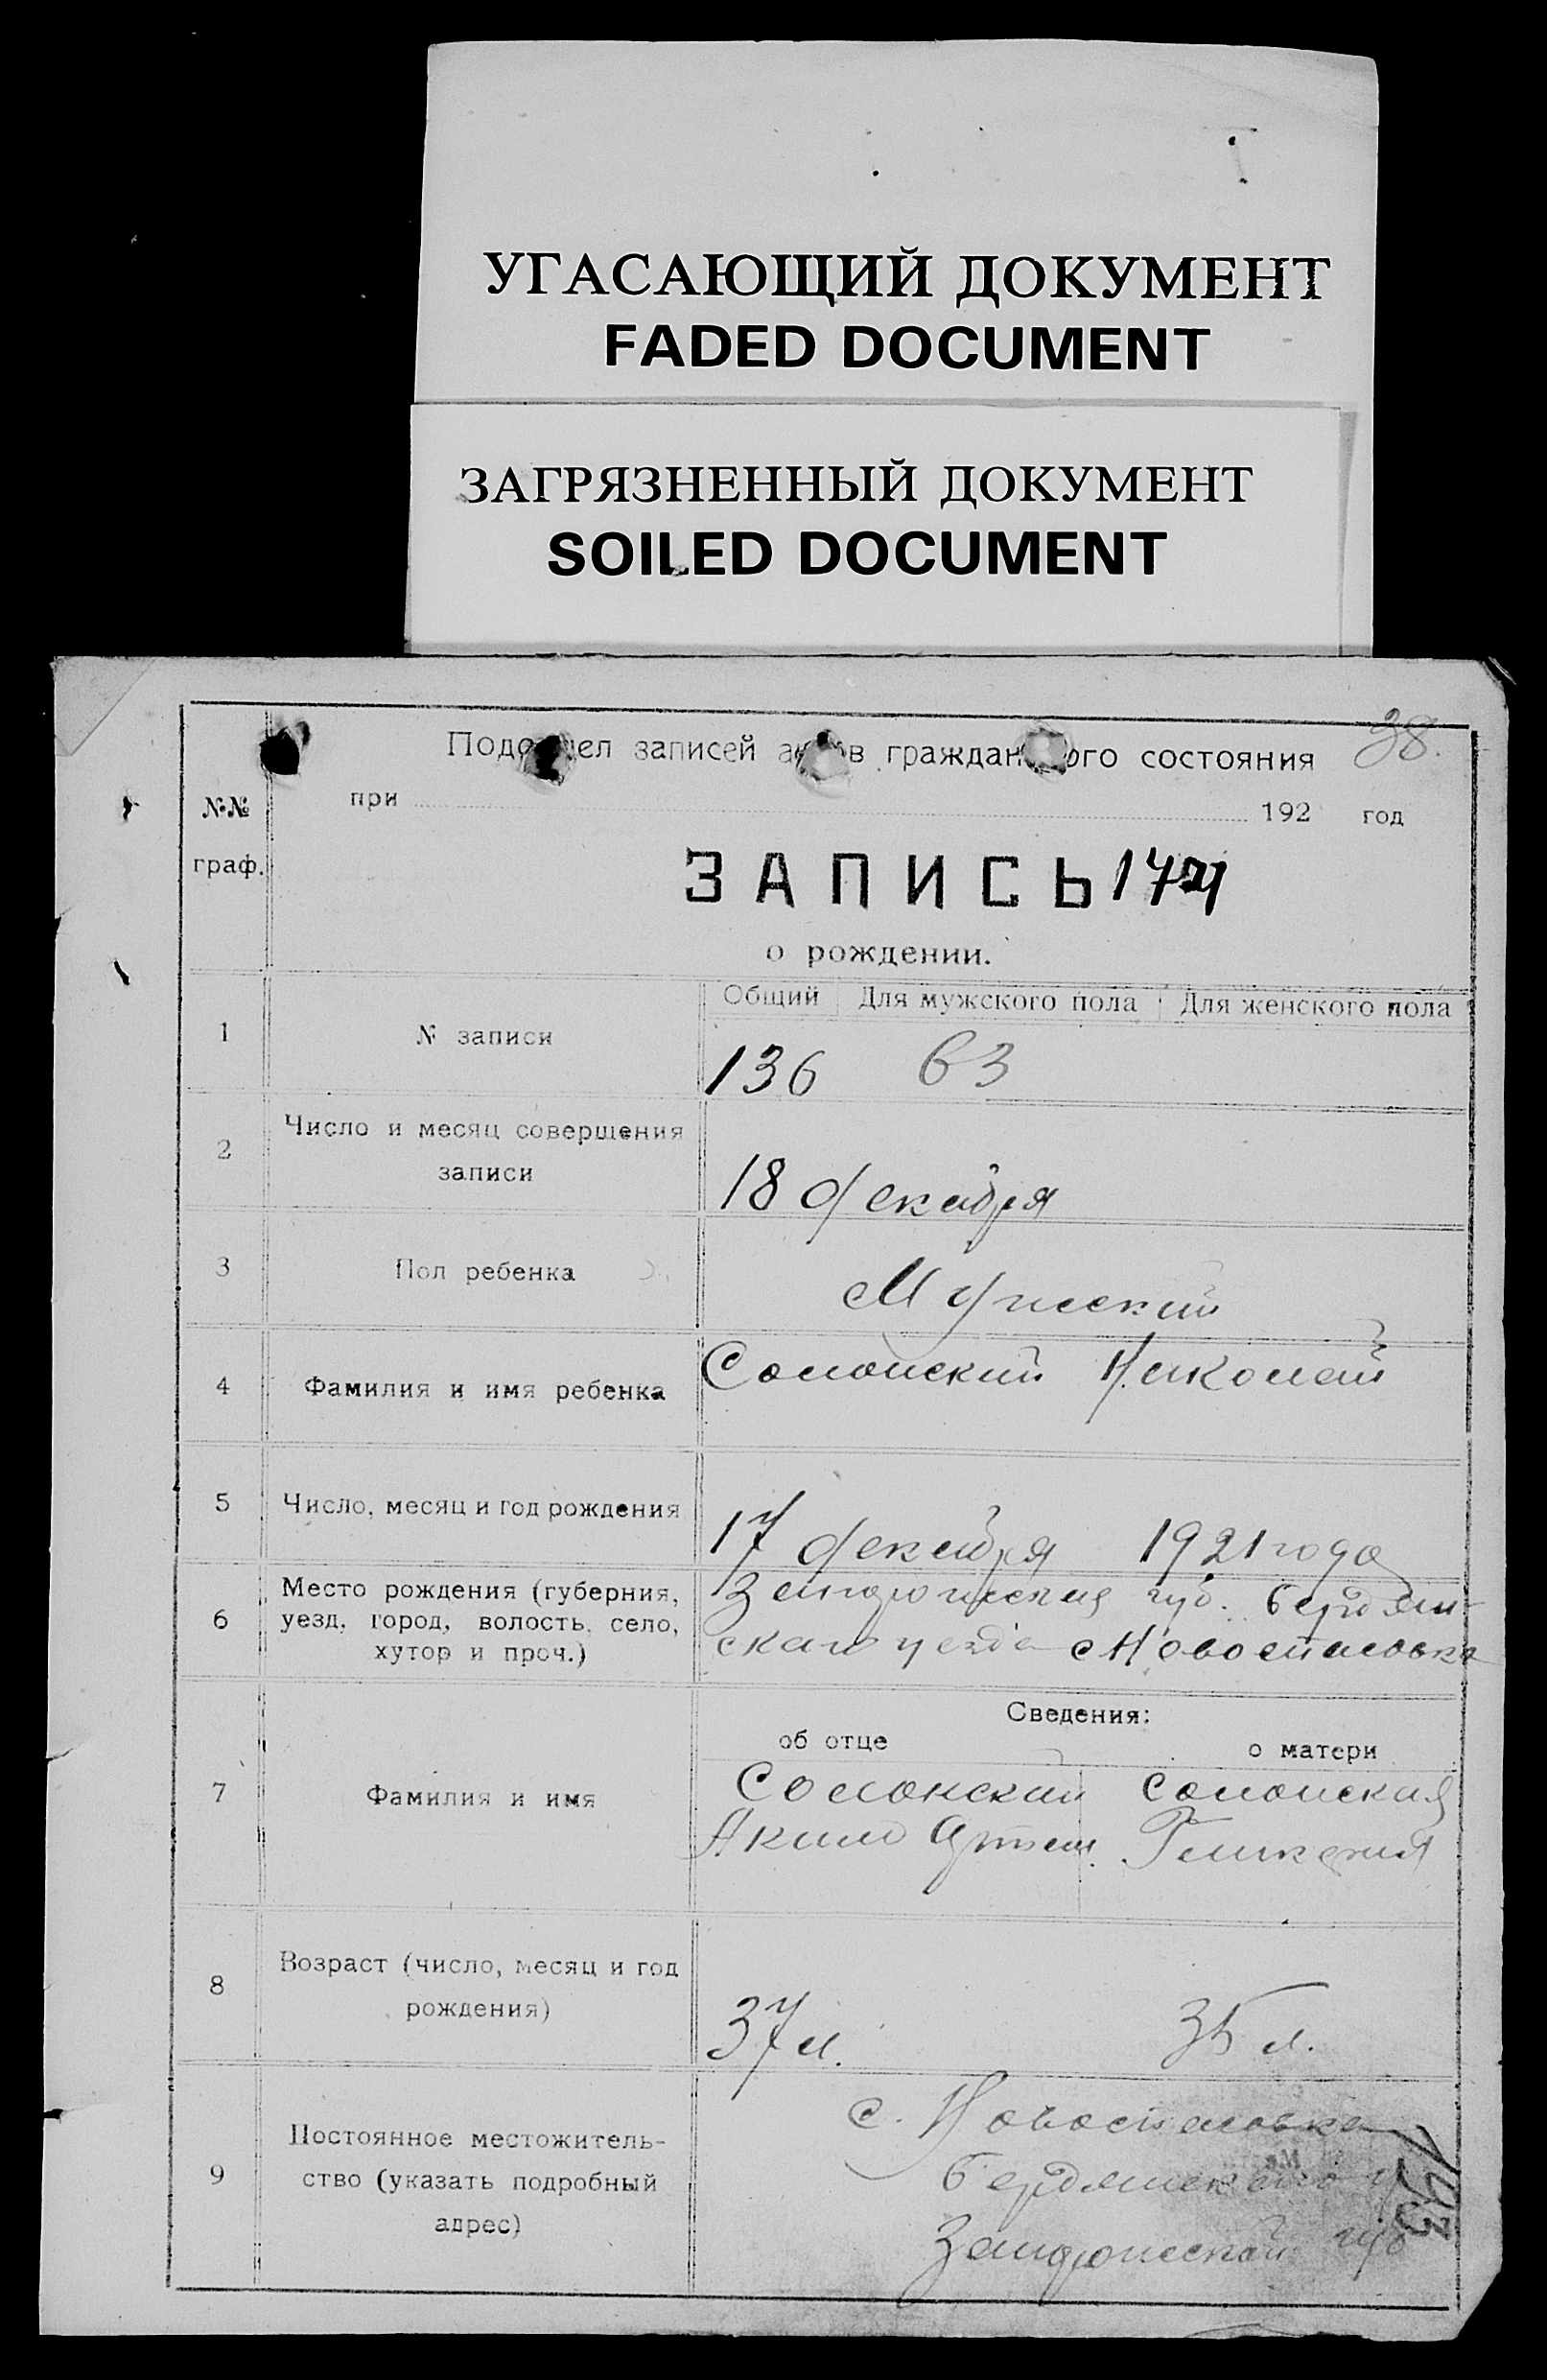 УГАСАЮЩИЙ ДОКУМЕНТ
FADED DOCUMENT
ЗАГРЯЗНЕННЫЙ ДОКУМЕНТ
SOILED DOCUMENT
38.
записей гражданского состояния
при 192 год
№№
граф.
ЗАПИСЬ
о рождении.
Общий Для мужского пола Для женского пола
1 № записи
136 63
2 Число и месяц совершения
записи
18 декабря
3 Пол ребенка
Мужской
4 Фамилия и имя ребенка
Солонский Николай
5 Число, месяц и год рождения
17 декабря 1921 года
6 Место рождения (губерния,
уезд, город, волость, село,
хутор и проч.)
губ. Бердян-
скаго уезда с Новоспасовка
Сведения:
об отце о матери
7 Фамилия и имя
Солонский Солонская
Аким Артем.
8 Возраст (число, месяц и год
рождения)
37 л. 35 л.
9 Постоянное местожитель-
ство (указать подробный
адрес)
с. Новоспасовка
Бердянскаго у
губ